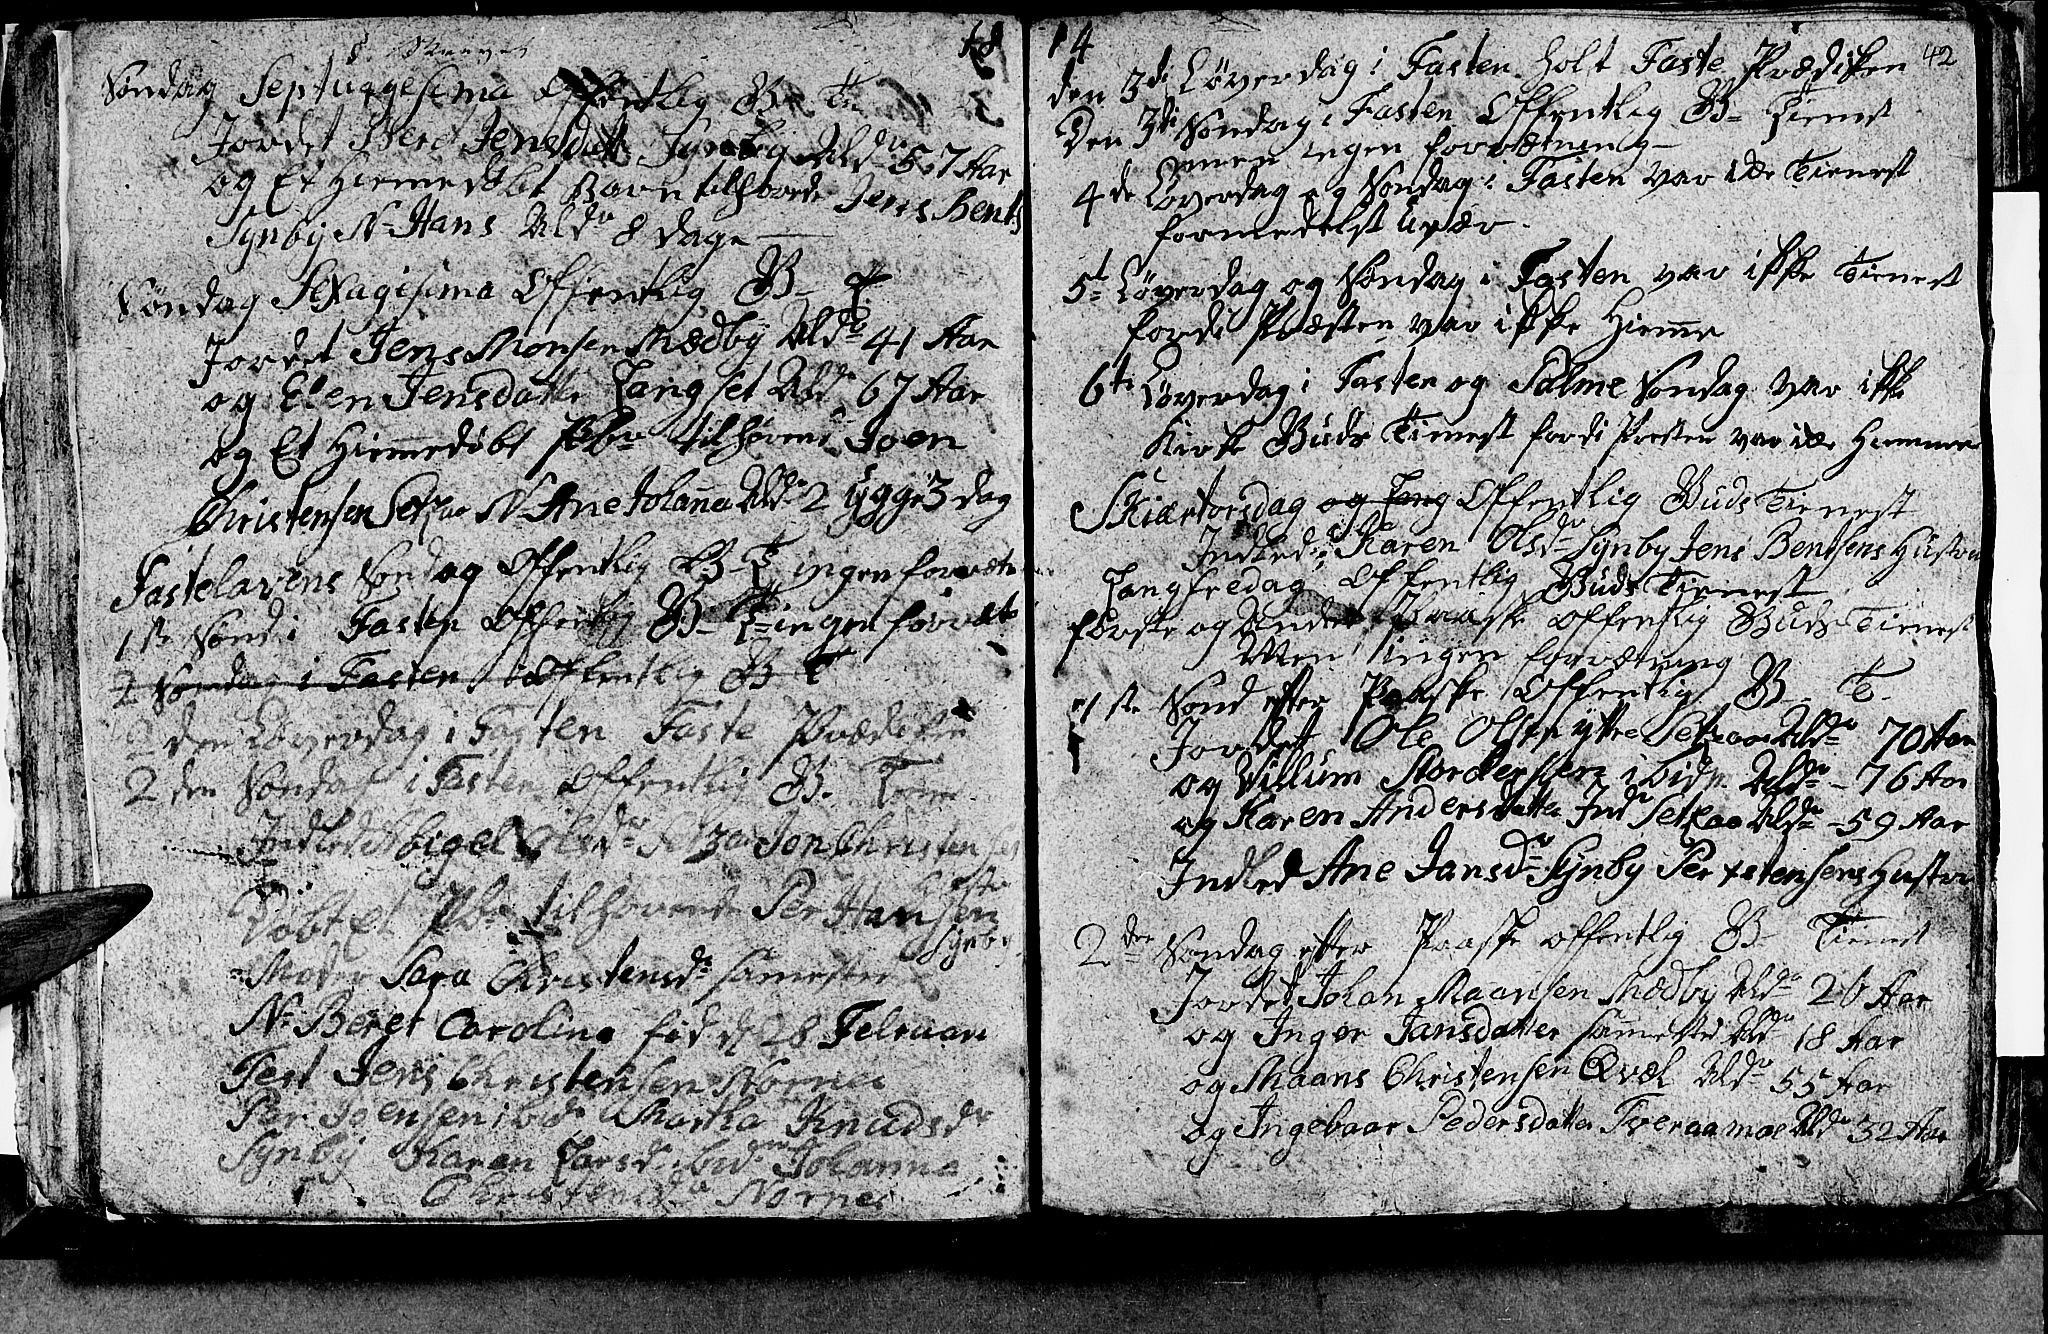 18
Søndag Septuggesima Offentlig B- Tn
Jordet Beret Jensdatt Synby Aldr 57 Aar
og Et Hiemedøbt Barn tilhørende Jens Bents
Synby N- Hans Aldr 8 dage
Søndag Sexagisima Offentlig B- T
Jordet Jens Monsen Mædby Aldr 41 Aar
og Elen Jensdatter Langset Aldr 67 Aar
og Et Hiemmedøbt tilhørende Joen
Christensen Setraa N- Ane Iohanna Aldr 2 ugge 3 dag
Fastelavens Søndag Offentlig B- T ingen forrætn
1ste Sønd i Fasten Offentlig B- T- ingen forræt
2 Søndag i Fasten Offentlig B T
2den Løverdag i Fasten Faste Prædiken
2den Søndag i Fasten Offentlig B. Tiene
Indled Abigel Olsdr Setraa Jon Christensens
Hustr
Døbt Et tilhørende Per Hansen
Synby
Moder Sara Christensdr sammested
N- Beret Carolina fød d. 28 Februari
Test Jens Christensen Stornes
Per Joensen ibd Martha Knudsdr
Synby Karen Larsdr ibid Iohanna
Christensdr Stornes
14
42
den 3di Løverdag i Fasten holt Faste Prædiken
Den 3di Søndag i Fasten Offentlig B- Tienest
men ingen forrætning
4de Løverdag og Søndag i Fasten var icke Tienest
formedelst Uvær
5t Løverdag og Søndag i Fasten var ikke Tienest
fordi Præsten var ikke Hieme
6te Løverdag i Fasten og Palme Søndag var ikke
Kirke Buds Tienest fordi Præsten var icke Hiemme
Skiærtorsdag og Lang Offentlig Buds Tienest
Indled Karen Olsdr Synby Jens Bentsens Hustru
Langfredag Offentlig Buds Tienest
første og Anden Paaske Offentlig Buds Tienest
Men ingen forrætning
1ste Sønd efter Paaske Offentlig B- T-
Jordet Ole Olsen ytre Setraa Aldr 70 Aar
og Villum ibid Aldr - 76 Aar
og Karen Andersdatter Indr Setraa Aldr - 59 Aar
Indled Ane Jansdr Synby Per xstensens Hustru
2den Søndag efter Paaske offentlig B- Tienest
Jordet Johan Maansen Mædby Aldr 26 Aar
og Inger Jansdatter sammested Aldr 18 Aar
og Maans Christensen Qvæl Aldr 55 Aar
og Ingebaar Pedersdatter Tveraamoe Aldr 32 Aar